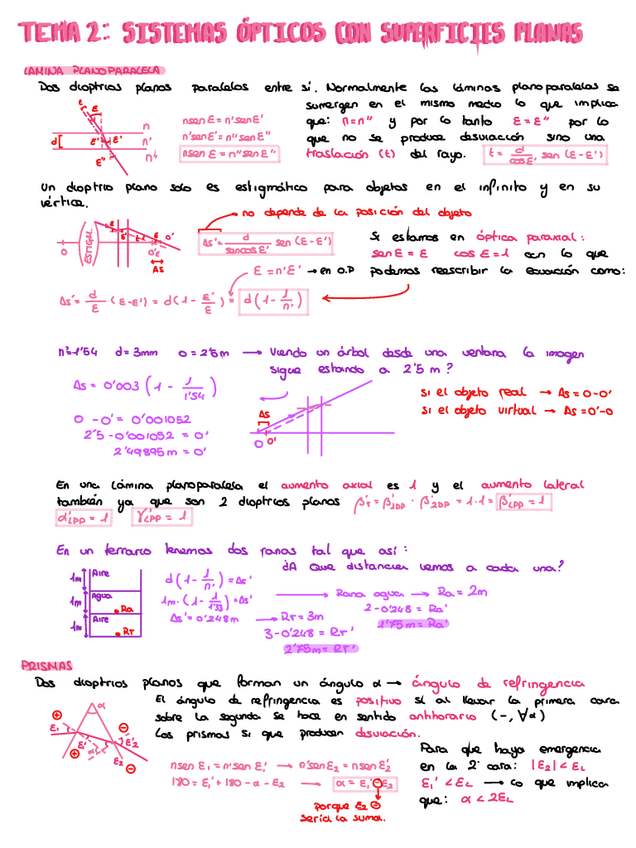 TEMA 2: SISTEMAS ÓPTICOS CON SUPERFICIES PLANAS
LÁMINA PLANOPARALELA
Dos dioptrios planos paralelos entre sí. Normalmente las láminas planoparalelas se
sumergen en el mismo medio lo que implica
que: n=n" y por lo tanto ε=ε" por lo
que no se produce desviación sino una
traslación (t) del rayo. t = d/cosε' sen (ε-ε')
t ε n
d ε' ε' n'
ε" n"
nsenε = n'senε'
n'senε' = n"senε"
nsenε = n"senε"
Un dioptrio plano solo es estigmático para objetos en el infinito y en su
vértice.
no depende de la posición del objeto
Δs' = d/senεcosε' sen (ε-ε')
Si estamos en óptica paraxial:
senε = ε cosε = 1 con lo que
podemos reescribir la ecuación como:
ε = n'ε' → en O.P
Δs' = d/ε (ε-ε') = d(1 - ε'/ε) = d(1 - 1/n')
n'=1'54 d=3mm o=2'5m → Viendo un árbol desde una ventana la imagen
sigue estando a 2'5 m?
Δs = 0'003 (1 - 1/1'54)
0 - 0' = 0'001052
2'5 - 0'001052 = 0'
2'49895m = 0'
Δs
0 0'
si el objeto real → Δs = 0-0'
si el objeto virtual → Δs = 0'-0
En una lámina planoparalela el aumento axial es 1 y el aumento lateral
también ya que son 2 dioptrios planos β'T = β'1DP · β'2DP = 1·1 = β'LPP = 1
α'LPP = 1 γ'LPP = 1
En un terrario tenemos dos ranas tal que así:
¿A que distancia vemos a cada una?
1m Aire
1m Agua Ra
1m Aire Rt
d(1 - 1/n') = Δs'
1m·(1 - 1/1'33) = Δs'
Δs' = 0'248m
Rana agua → Ra = 2m
2 - 0'248 = Ra'
1'75m = Ra'
Rt = 3m
3 - 0'248 = Rt'
2'75m = Rt'
PRISMAS
Dos dioptrios planos que forman un ángulo α → ángulo de refringencia
El ángulo de refringencia es positivo si al llevar la primera cara
sobre la segunda se hace en sentido antihorario (-, ∀α)
Los prismas si que producen desviación.
nsenε1 = n'senε1' → n'senε2 = nsenε2'
180 = ε1' + 180 - α - ε2 → α = ε1' - ε2
porque ε2 ⊖
seria la suma.
Para que haya emergencia
en la 2ª cara: |ε2| < εL
ε1' < εL → lo que implica
que: α < 2εL